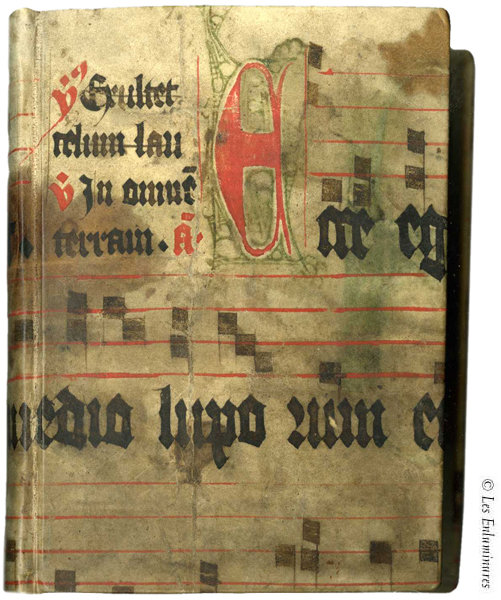 V̄ Exultet
celum lau
V̄ In omnē
terram. ā.
Ecce eg
medio lupo rum e
© Les Enluminures